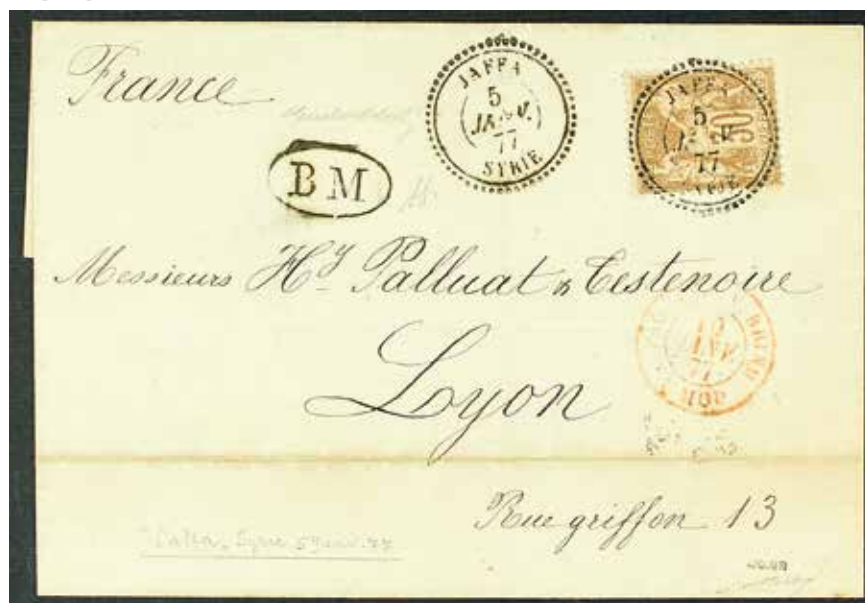 France
JAFFA
5
JANV.
77
SYRIE
JAFFA
5
77
30
BM
Messieurs Hy Palluat & Testenoire
Lyon
Rue griffon 13